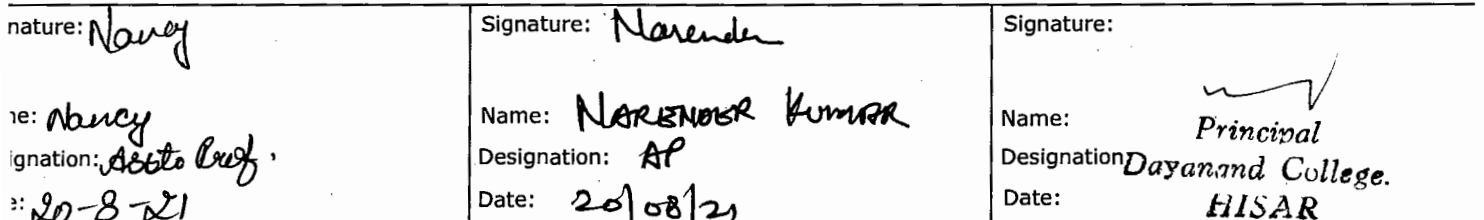 nature: Nancy
Signature: Narender
Signature:
ne: Nancy
Name: NARENDER KUMAR
Name:
Principal
ignation: Asstt. Prof.
Designation: AP
Designation Dayanand College.
e: 20-8-21
Date: 20/08/21
Date:
HISAR